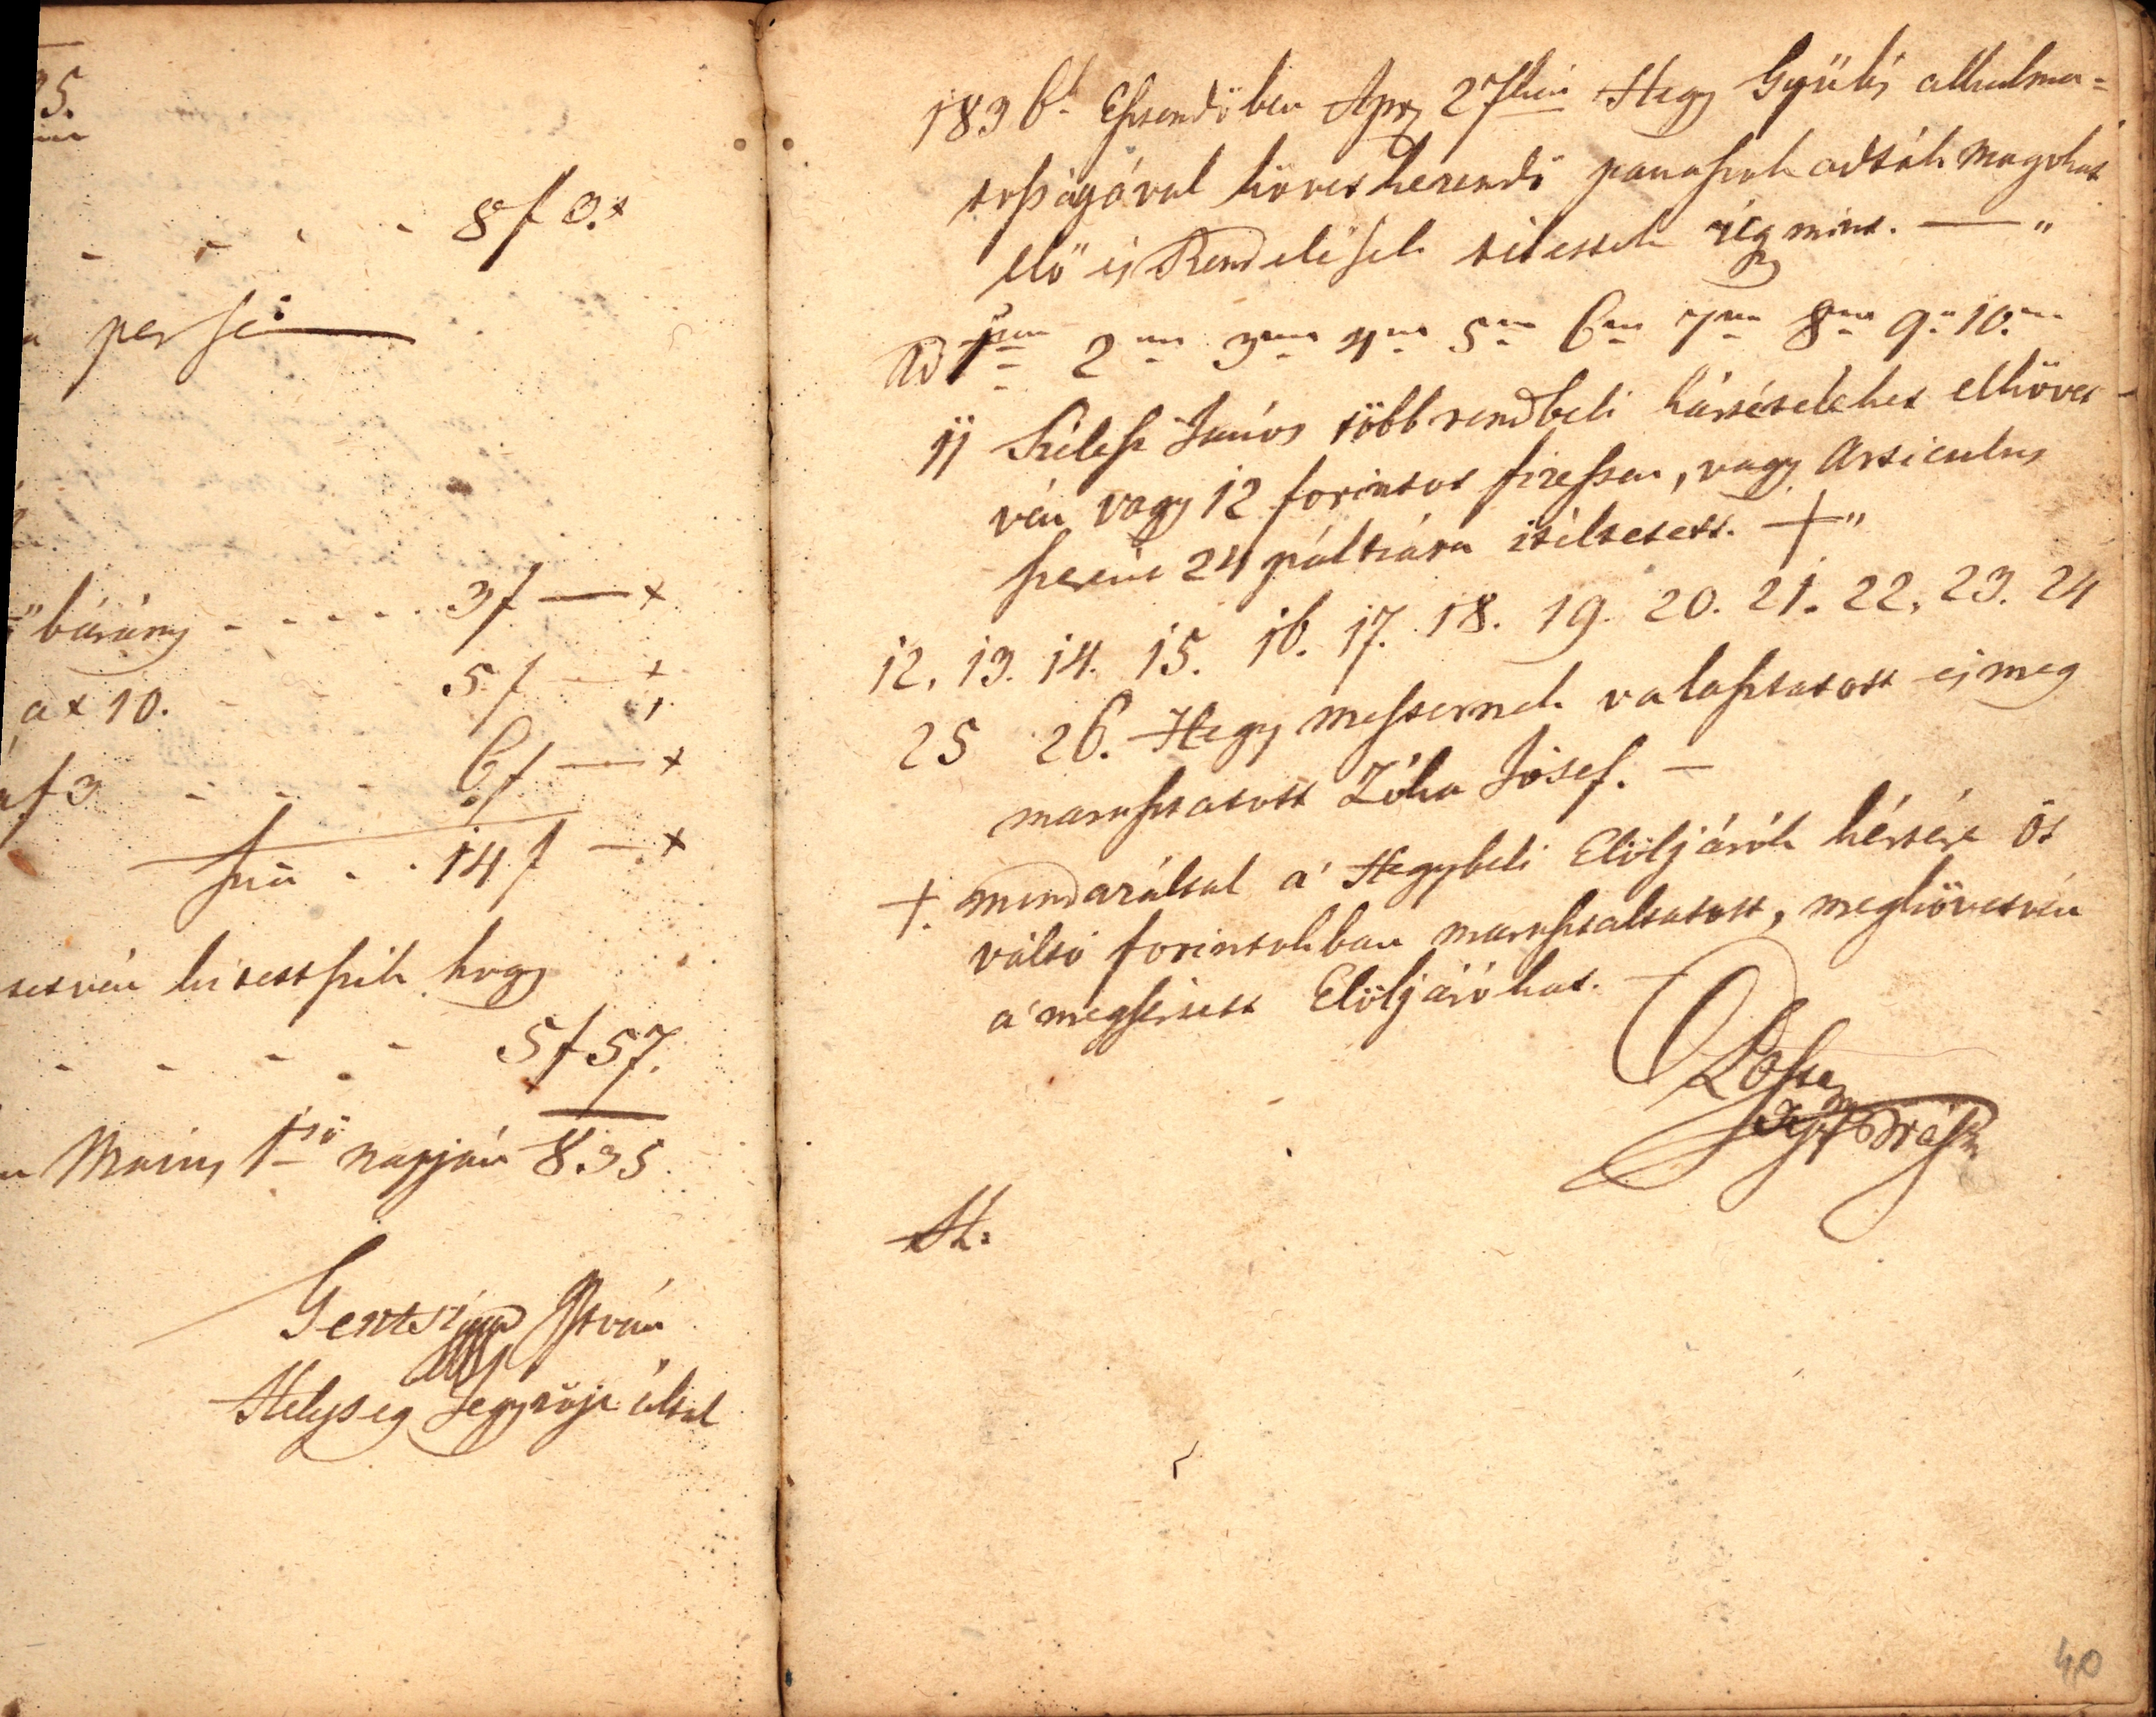 35.
8 f 3. x
per se
bárány - - - - 3 f — x
a x 10. 5 f — x
a f 3 - - - 6 f — x
Sũa - - 14 f — x
hogy
5 f 57.
Május 1ső napján 835
István
Helység Jegyzője által
1836k Esztendőben Apr 27kén Hegy Gyülés alkalma-
tosságával következendő panaszok adták magokat
elő és Rendelések tétettek úgymint. —"
Ad 1um 2um 3um 4um 5um 6um 7um 8um 9um 10um
11 János több rendbeli kártételeket elkövet-
vén vagy 12 forintot fizessen, vagy Articulus
szerint 24 páltzára itéltetett. +"
12, 13. 14. 15. 16. 17. 18. 19. 20. 21. 22, 23. 24
25 26. Hegy mesternek választatott és meg
marasztatott Zóka Jósef. —
+. mindazáltal a' Hegybeli Elöljárók kérésére öt
váltó forintokban marasztaltatott, megkövetvén
a' megsértett Elöljárókat.
40